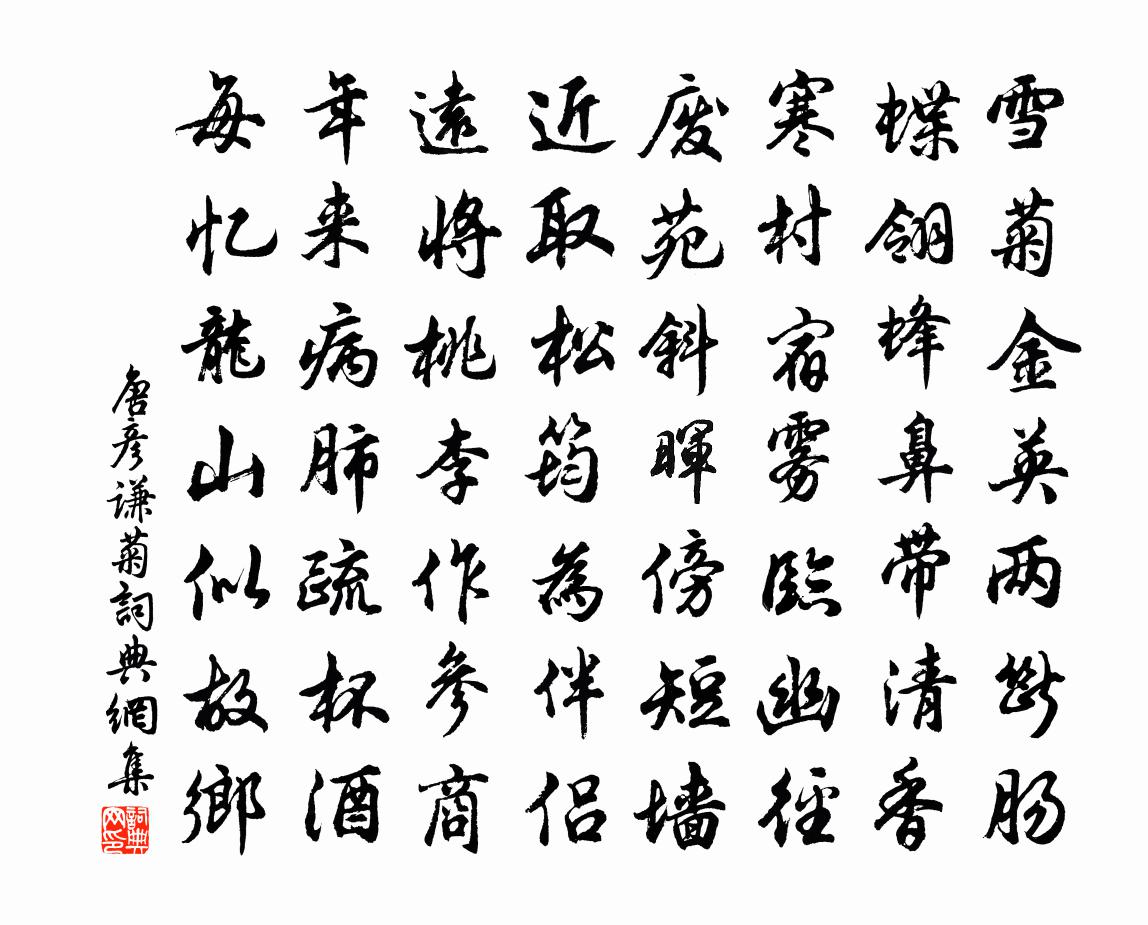 雪菊金英两断肠
蝶翎蜂鼻带清香
寒村宿雾临幽径
废苑斜晖傍短墙
近取松筠為伴侣
遠将桃李作参商
年来病肺疏杯酒
每忆龍山似故鄉
唐彦谦菊詞典網集
詞典网印